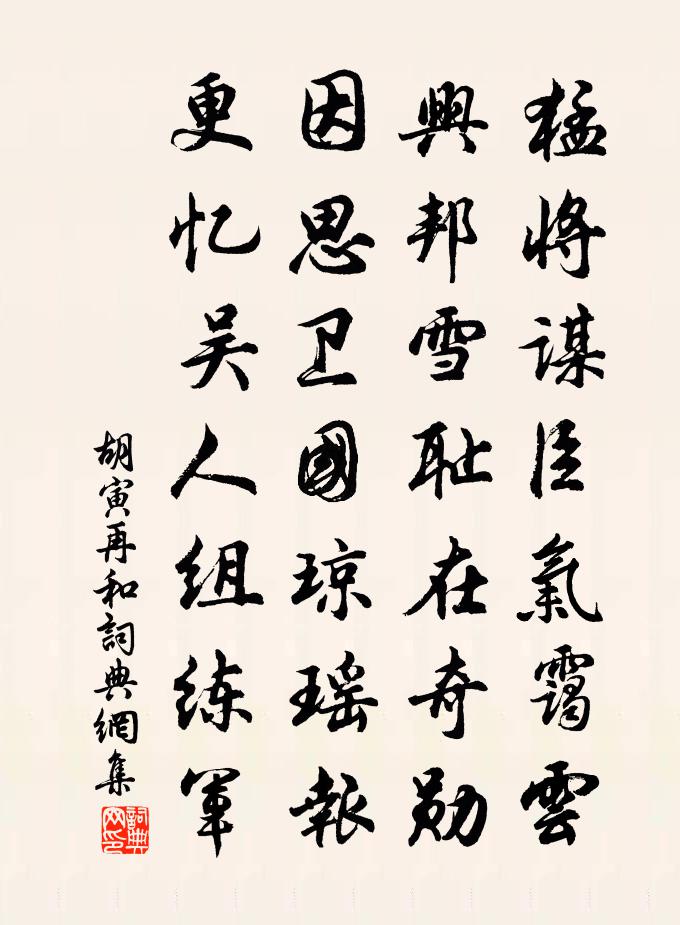 猛将谋臣氣靄雲
興邦雪耻在奇勋
因思卫國琼瑶報
更忆吴人组练軍
胡寅再和詞典網集
詞典网印